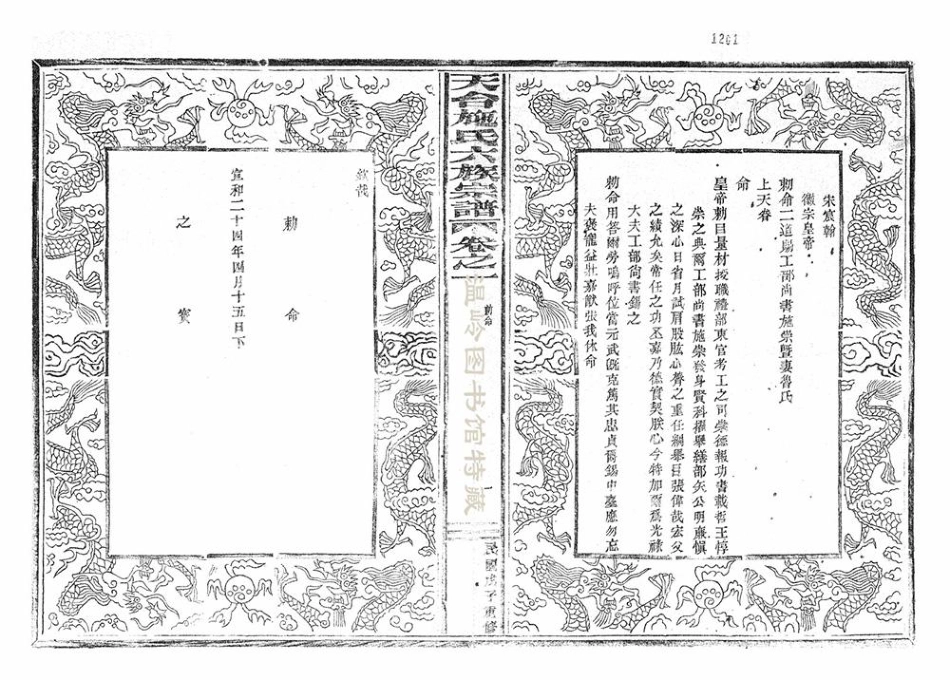 1261
宋宸翰
徽宗皇帝
勅命二道賜工部尚書施崇暨妻魯氏
上天眷
命
皇帝勅曰量材授職禮部東官考工之司崇德報功書載哲王惇
崇之典爾工部尚書施崇發身賢科擢舉繕部矢公明廉慎
之深心日省月試肩股肱心膂之重任綱舉目張偉哉宏父
之績允矣常任之功丕嘉乃德實契朕心今特加爾爲光祿
大夫工部尚書錫之
勅命用答爾勞嗚呼位當元武旣克篤其忠貞爾錫中臺應勿忘
夫褒寵益壯嘉猷張我休命
天台施氏六族宗譜卷之一
勅命
一
民國 子重修
温岭图书馆特藏
欽哉
勅命
宣和二十四年四月十五日下
之寳